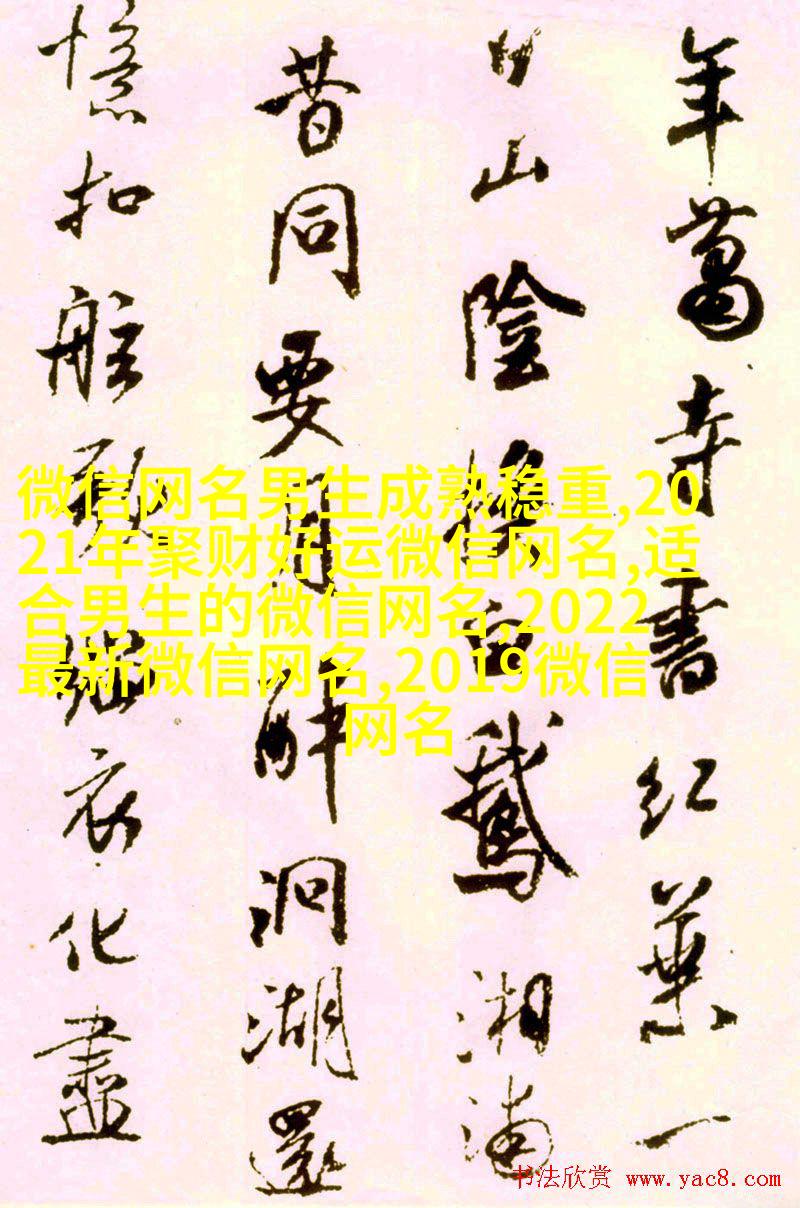 年蕭寺書紅葉一
日山陰換白鵝湘浦
昔同要月醉洞湖還
憶扣舷歌緇衣化盡
微信网名男生成熟稳重,20
21年聚财好运微信网名,适
合男生的微信网名,2022
最新微信网名,2019微信
网名
书法欣赏 www.yac8.com